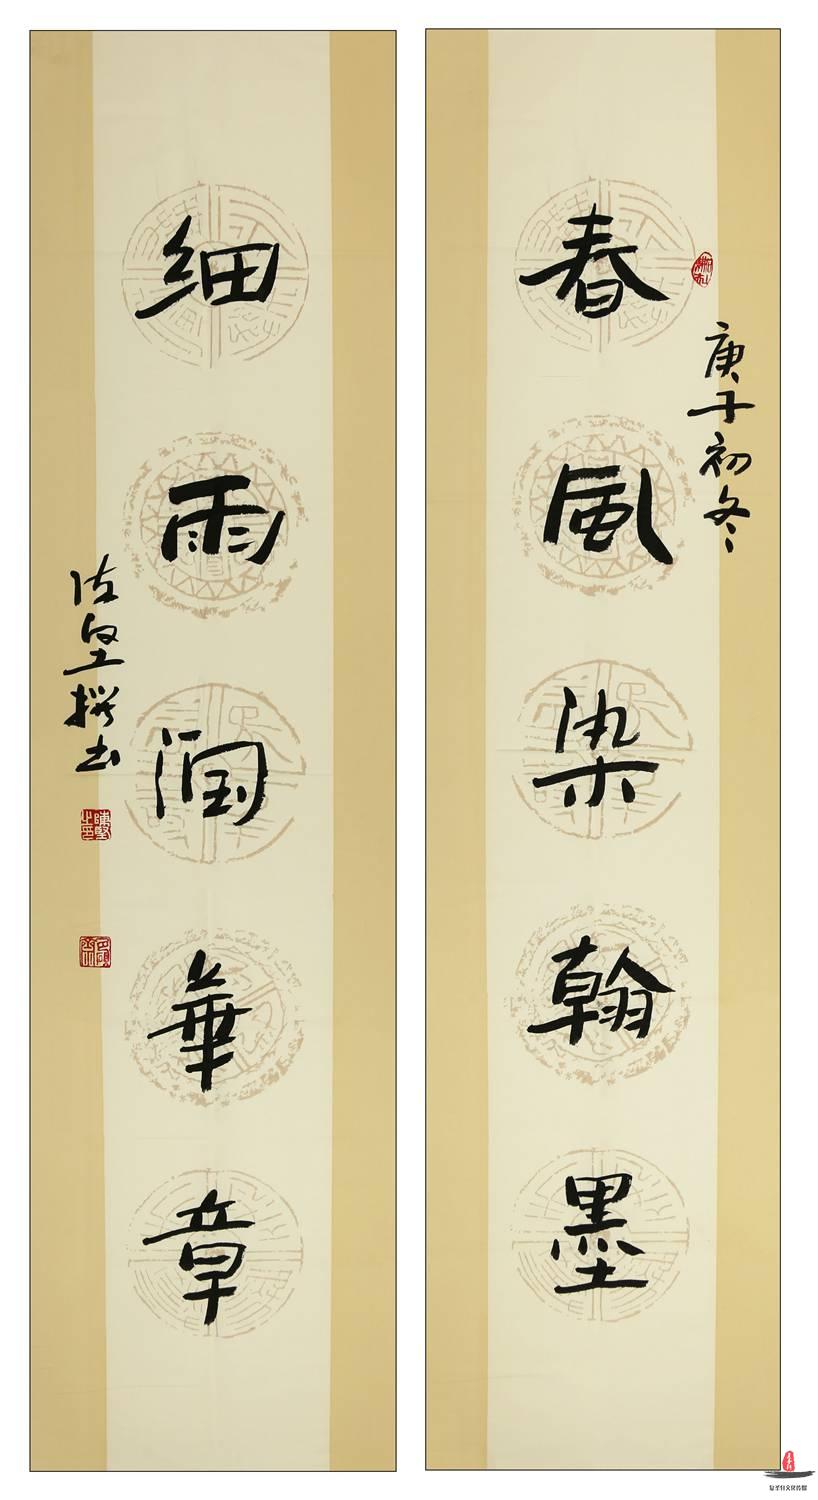 春風染翰墨
庚子初冬
細雨潤華章
撰書